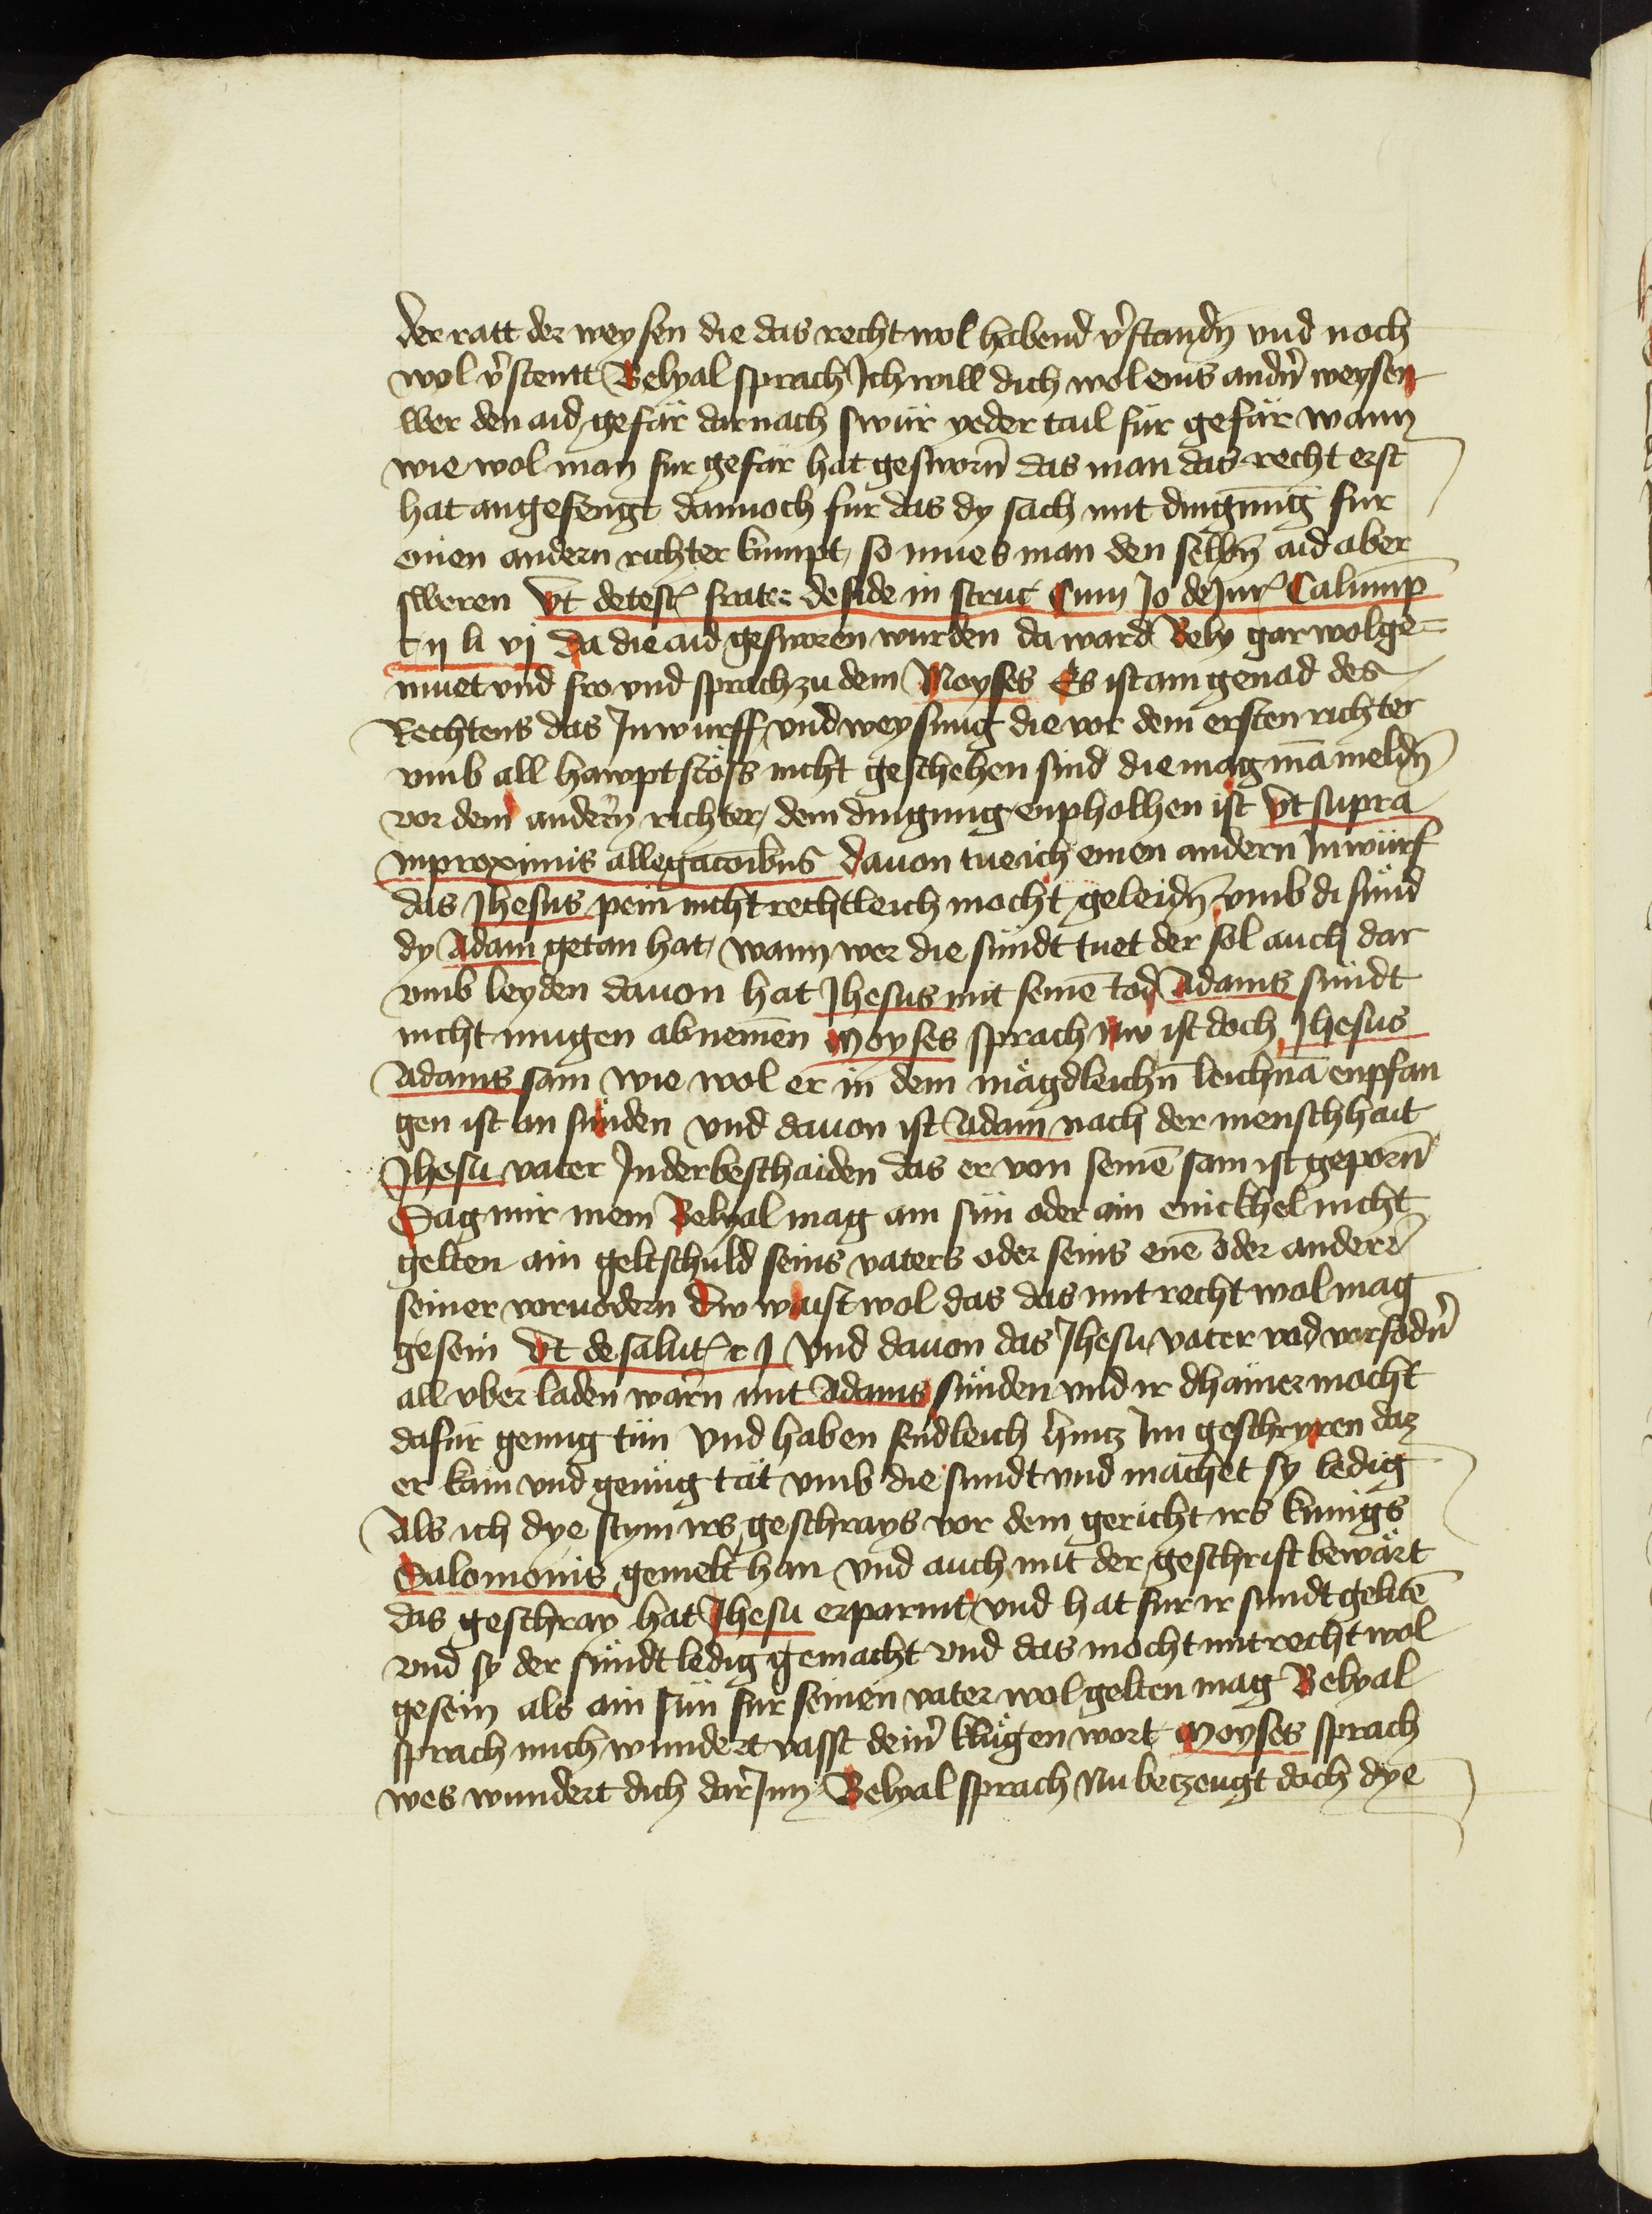 der ratt der weysen die das recht wol habend v̓standn̄ vnd noch
wol v̓stentt Belyal sprach Ich will dich wol eins andn̓ weysen
wer den aid gefär darnach swür yeder tail für gefär wann
wie wol man fur gefär hat gesworn̄ das man das recht erst
hat angefengt dannoch fur das dy sach mit dingung fur
einen andern richter kumpt so mues man den selbn̄ aid aber
sweren Vt de test frater de fide in struc Cum Jo de Jur Calump̄
t ij li vj Da die aid gesworen wurden da ward Bely gar wolge=
muet vnd fro vnd sprach zu dem Moyses Es ist ain genad des
Rechtens das Inwurff vnd weysung die vor dem ersten richter
vmb all hawptstöss nicht geschehen sind die mag mā meldn̄
vor dem andern richter dem dingung enpholhen ist Vt supra
inproximis allegacōibus dauon tue ich einen andern Inwürf
das Jhesus pein nicht rechtleich mocht geleidn̄ vmb di sünd
dy Adam getan hat wann wer die sündt tuet der sol auch dar
vmb leyden dauon hat Jhesus mit seinē tod Adams sündt
nicht mugen ab nemen Moyses sprach Nw ist doch Jhesus
Adams sam wie wol er in dem mägdleichn̄ leichnā enpfan
gen ist an sünden vnd dauon ist Adam nach der menschhait
Jhesu vater In der beschaiden das er von seinē sam ist geporn̄
Sag mir mein Belyal mag ain sün oder ain enickhel nicht
gelten ain geltschuld seins vaters oder seins enē oder andern̄
seiner voruodern Dw waist wol das das mit recht wol mag
gesein Vt de salut r j Vnd dauon das Jhesu vater vnd vorfodn̓
all vber laden warn mit Adams sünden vnd ir dhainer mocht
dafür genug tün Vnd haben sendleich hintz Im geschryren daz
er kam vnd genug tät vmb die sundt vnd machet sy ledig
Als ich dye stym irs geschrays vor dem gericht irs kunigs
Salomonis gemelt han vnd auch mit der geschrift bewärt
das geschray hat Jhesu erparmt vnd hat fur ir sundt geltē
vnd sy der sündt ledig gemacht vnd das mocht mit recht wol
gesein als ain sün fur seinen vater wol gelten mag Belyal
sprach mich wundert vasst dein̓ klügen wort Moyses sprach
wes wundert dich dar Inn Belyal sprach Nu betzeugt doch dye